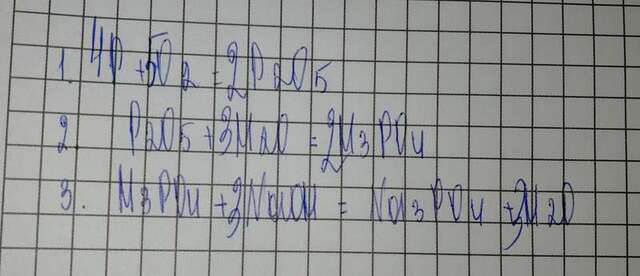 1. 4P + 5O2 = 2P2O5
2. P2O5 + 3H2O = 2H3PO4
3. H3PO4 + 3NaOH = Na3PO4 + 3H2O